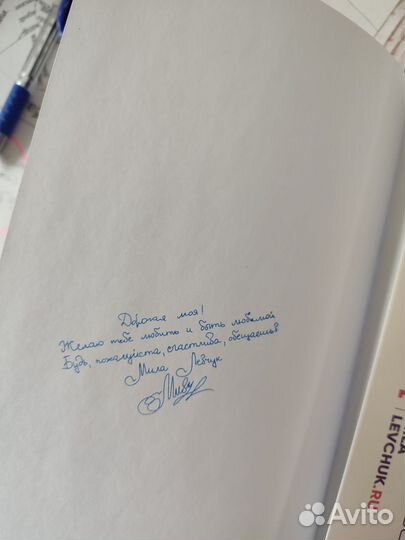 Дорогая моя!
Желаю тебе любить и быть любимой
Будь, пожалуйста, счастлива, обещаешь?
Мила Левчук
LEVCHUK.RU
Avito